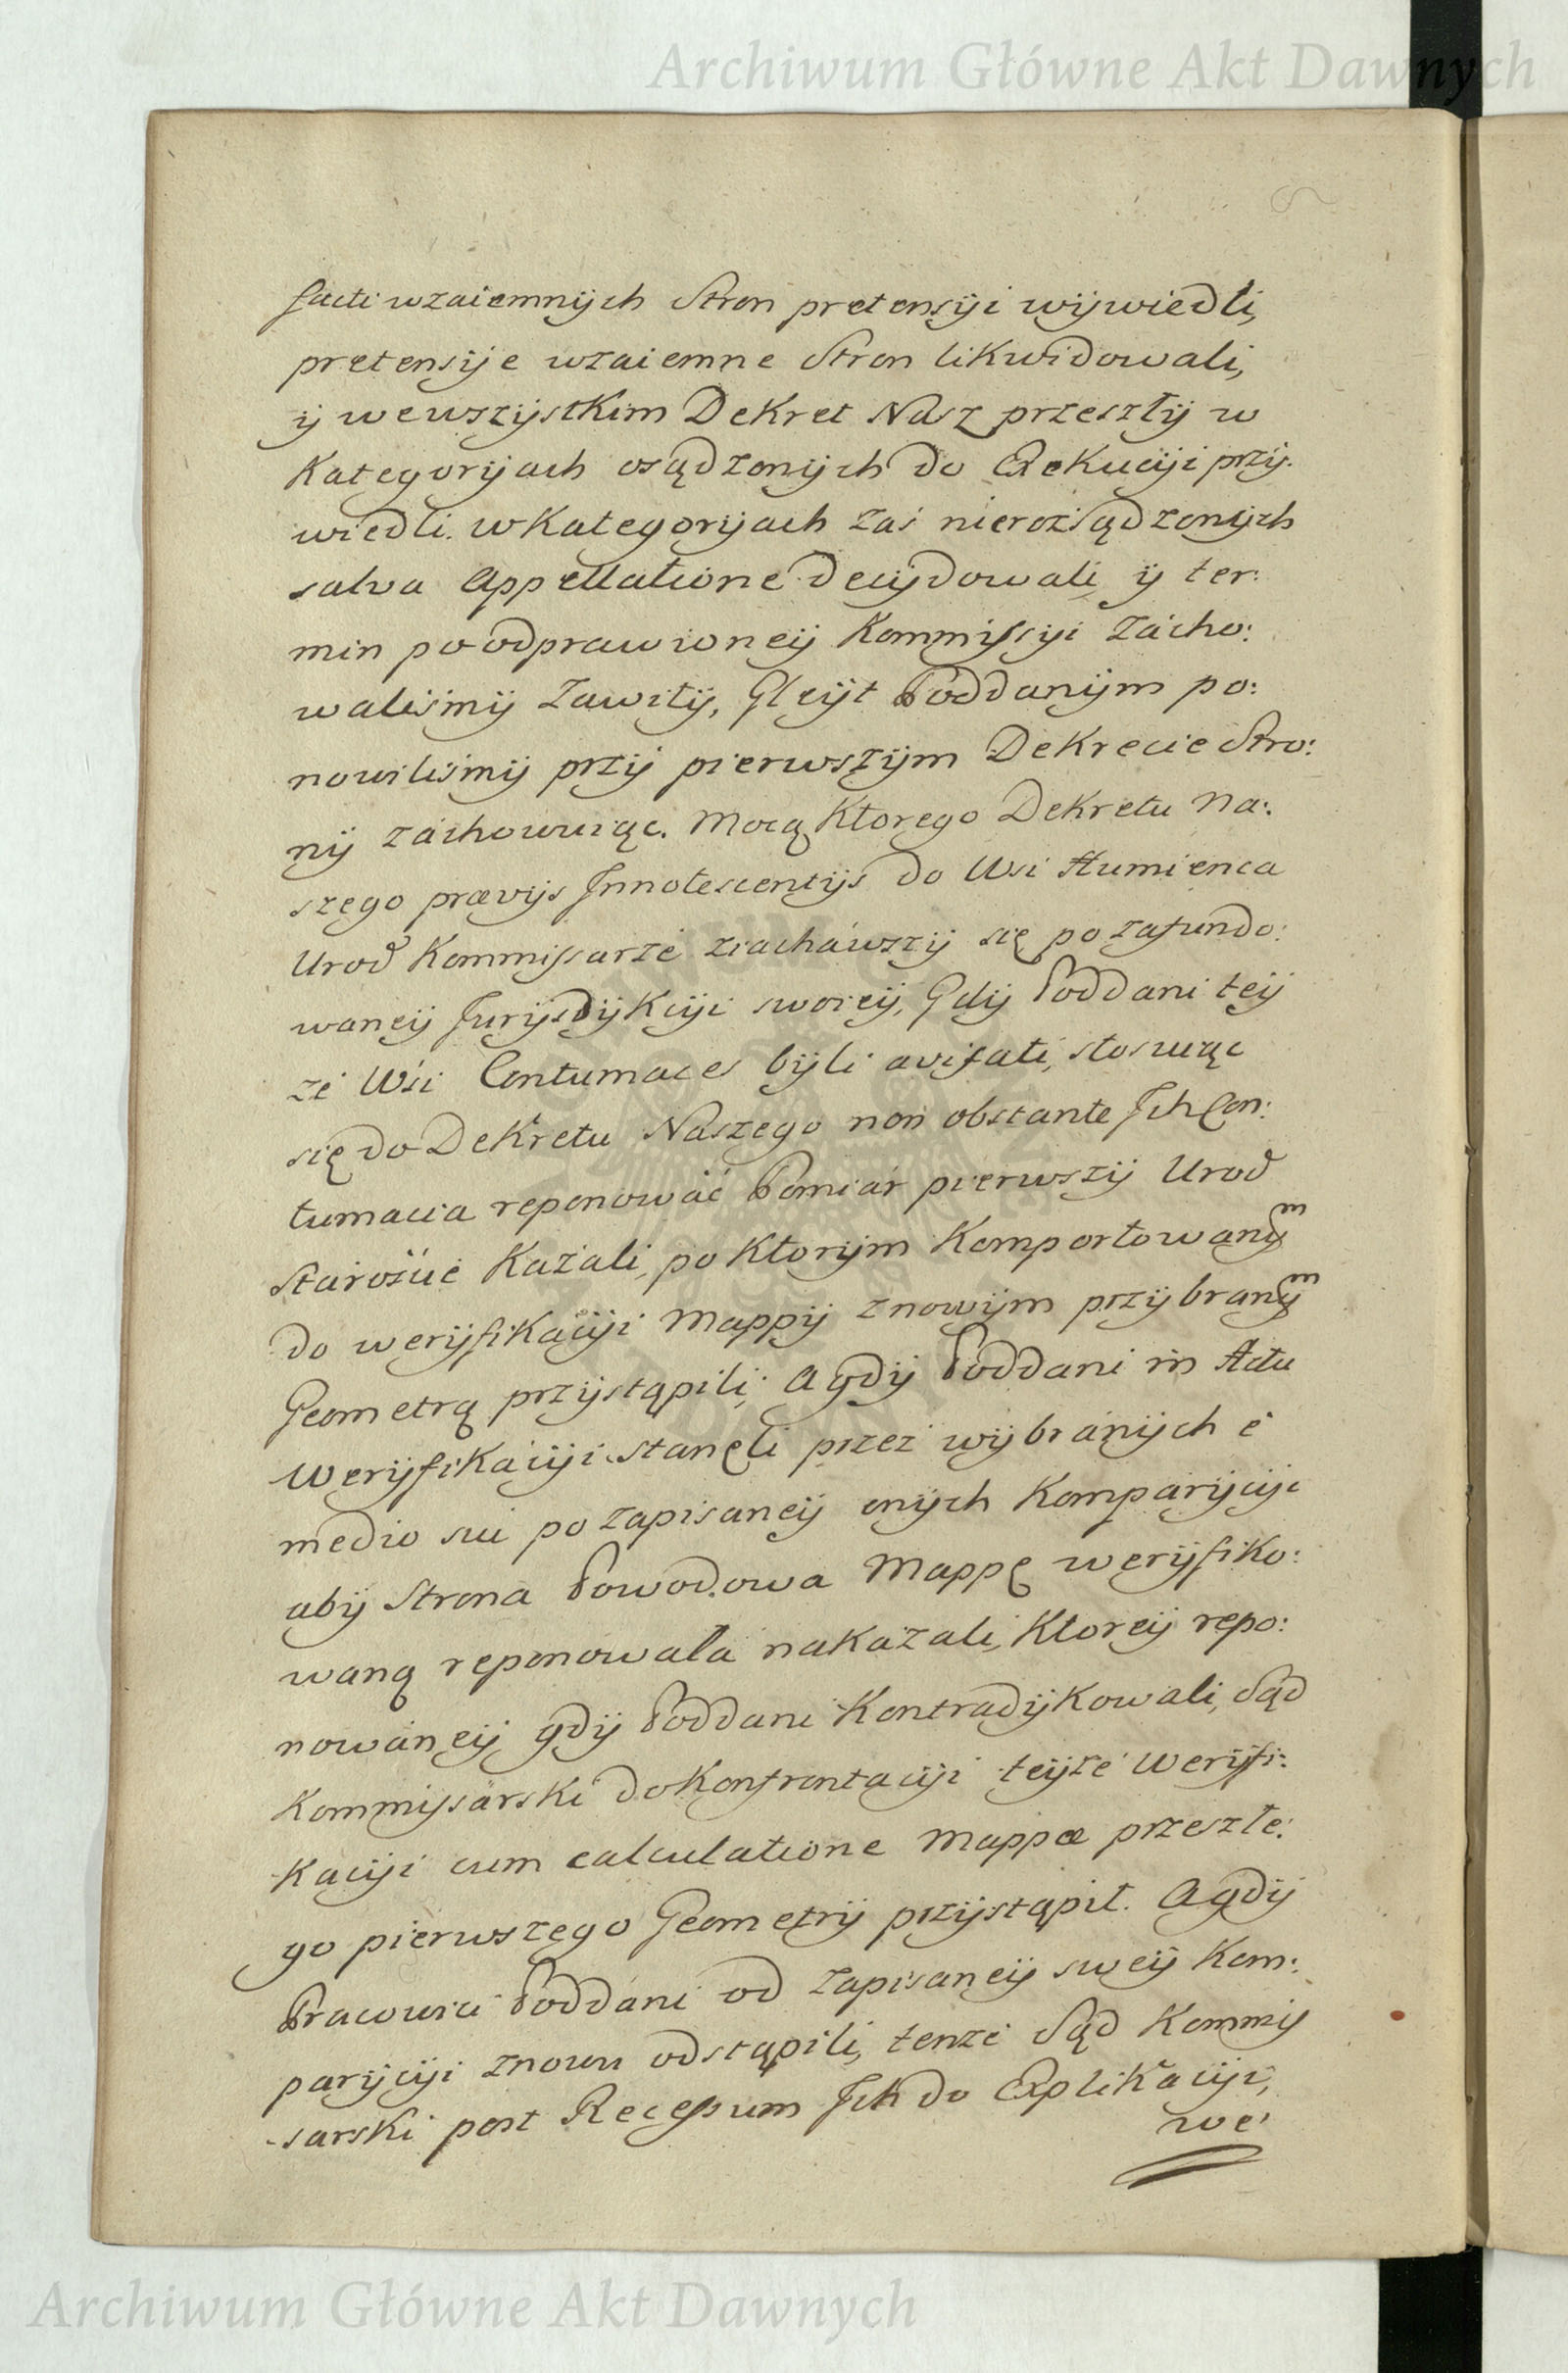 Archiwum Główne Akt Dawnych
facti wzaiemnÿch Stron pretensÿi wÿwiedli,
pretensÿe wzaiemne Stron likwidowali,
ÿ wewszÿstkim Dekret Nasz przeszłÿ w
Kategorÿach osądzonÿch do Exekucÿi przÿ:
wiedli. w Kategorÿach zaś nierozsądzonÿch
salva Appellatione decÿdowali, ÿ ter:
min po odprawioneÿ Kommissÿi zácho:
waliśmÿ zawitÿ, Gleÿt Poddanÿm po:
nowiliśmÿ przÿ pierwszÿm Dekrecie Stro:
nÿ záchowuiąc. Mocą Ktorego Dekretu Na:
szego prævÿs Innotescentÿs do Wsi Humienca
Urod Kommissarze ziacháwszÿ się po zafundo:
waneÿ Jurÿsdÿkcÿi swoieÿ, Gdÿ Poddani teÿ
że Wsi Contumaces bÿli avisati, stosuiąc
się do Dekretu Naszego non obstante Ich Con:
tumacia reponowáć Pomiár pierwszÿ Urod
Stároście Kazáli, po Ktorÿm Komportowanÿm
do werÿfikácÿi Mappÿ znowÿm przÿbranÿm
Geometrą przÿstąpili, A gdÿ Poddani in Actu
Werÿfikácÿi staneli przez wÿbránÿch é
medio sui po zapisaneÿ onÿch Kompárÿcÿi
abÿ Strona Powodowa Mappę werÿfiko:
waną reponowała nakázali, Ktoreÿ repo:
nowáneÿ gdÿ Poddani Kontradÿkowali, Sąd
Kommissárski do Konfrontacÿi teÿże Werÿfi:
Kacÿi cum calculatione Mappæ przeszłe:
go pierwszego Geometrÿ przÿstąpił. A gdÿ
Pracowici Poddáni od zapisaneÿ sweÿ Kom:
parÿcÿi znowu odstąpili, tenże Sąd Kommis
sarski post Recessum Ich do Explikácÿi,
we
Archiwum Główne Akt Dawnych